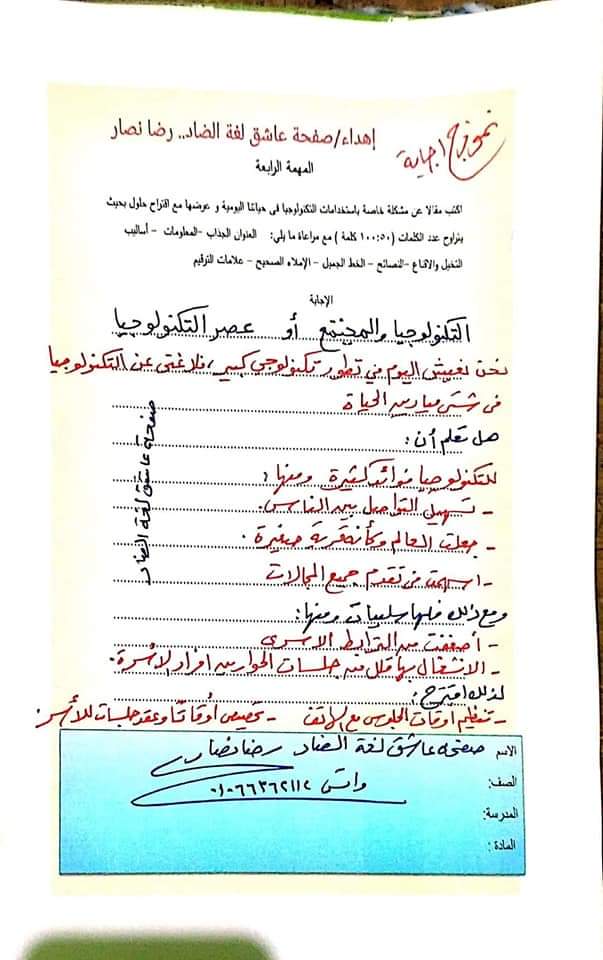 نموذج اجابة
إهداء/صفحة عاشق لغة الضاد.. رضا نصار
المهمة الرابعة
اكتب مقالا عن مشكلة خاصة باستخدامات التكنولوجيا فى حياتنا اليومية و عرضها مع اقتراح حلول بحيث
يتراوح عدد الكلمات (٥٠:١٠٠ كلمة) مع مراعاة ما يلي: العنوان الجذاب -المعلومات - أساليب
التخيل والاقناع -النصائح - الخط الجميل - الإملاء الصحيح - علامات الترقيم
الإجابة
التكنولوجيا والمجتمع أو عصر التكنولوجيا
نحن نعيش اليوم في تطور تكنولوجي كبير، فلا غنى عن التكنولوجيا
فى شتى ميادين الحياة
هل تعلم أن:
للتكنولوجيا فوائد كثيرة ومنها:
- تسهيل التواصل بين الناس.
- جعلت العالم وكأنه قرية صغيرة.
- اسهمت فى تقدم جميع المجالات
ومع ذلك فلها سلبيات ومنها:
- أضعفت من الترابط الاسرى
- الانشغال بها قلل من جلسات الحوار بين افراد الأسرة.
لذلك اقترح:
- تنظيم اوقات الجلوس مع الهاتف - تخصيص أوقاتا وعقد جلسات للأسر
صفحة عاشق لغة الضاد
الاسم صفحة عاشق لغة الضاد رضا نصار
الصف: واتس ٠١٠٦٦٣٦٢١١٢
المدرسة:
المادة: